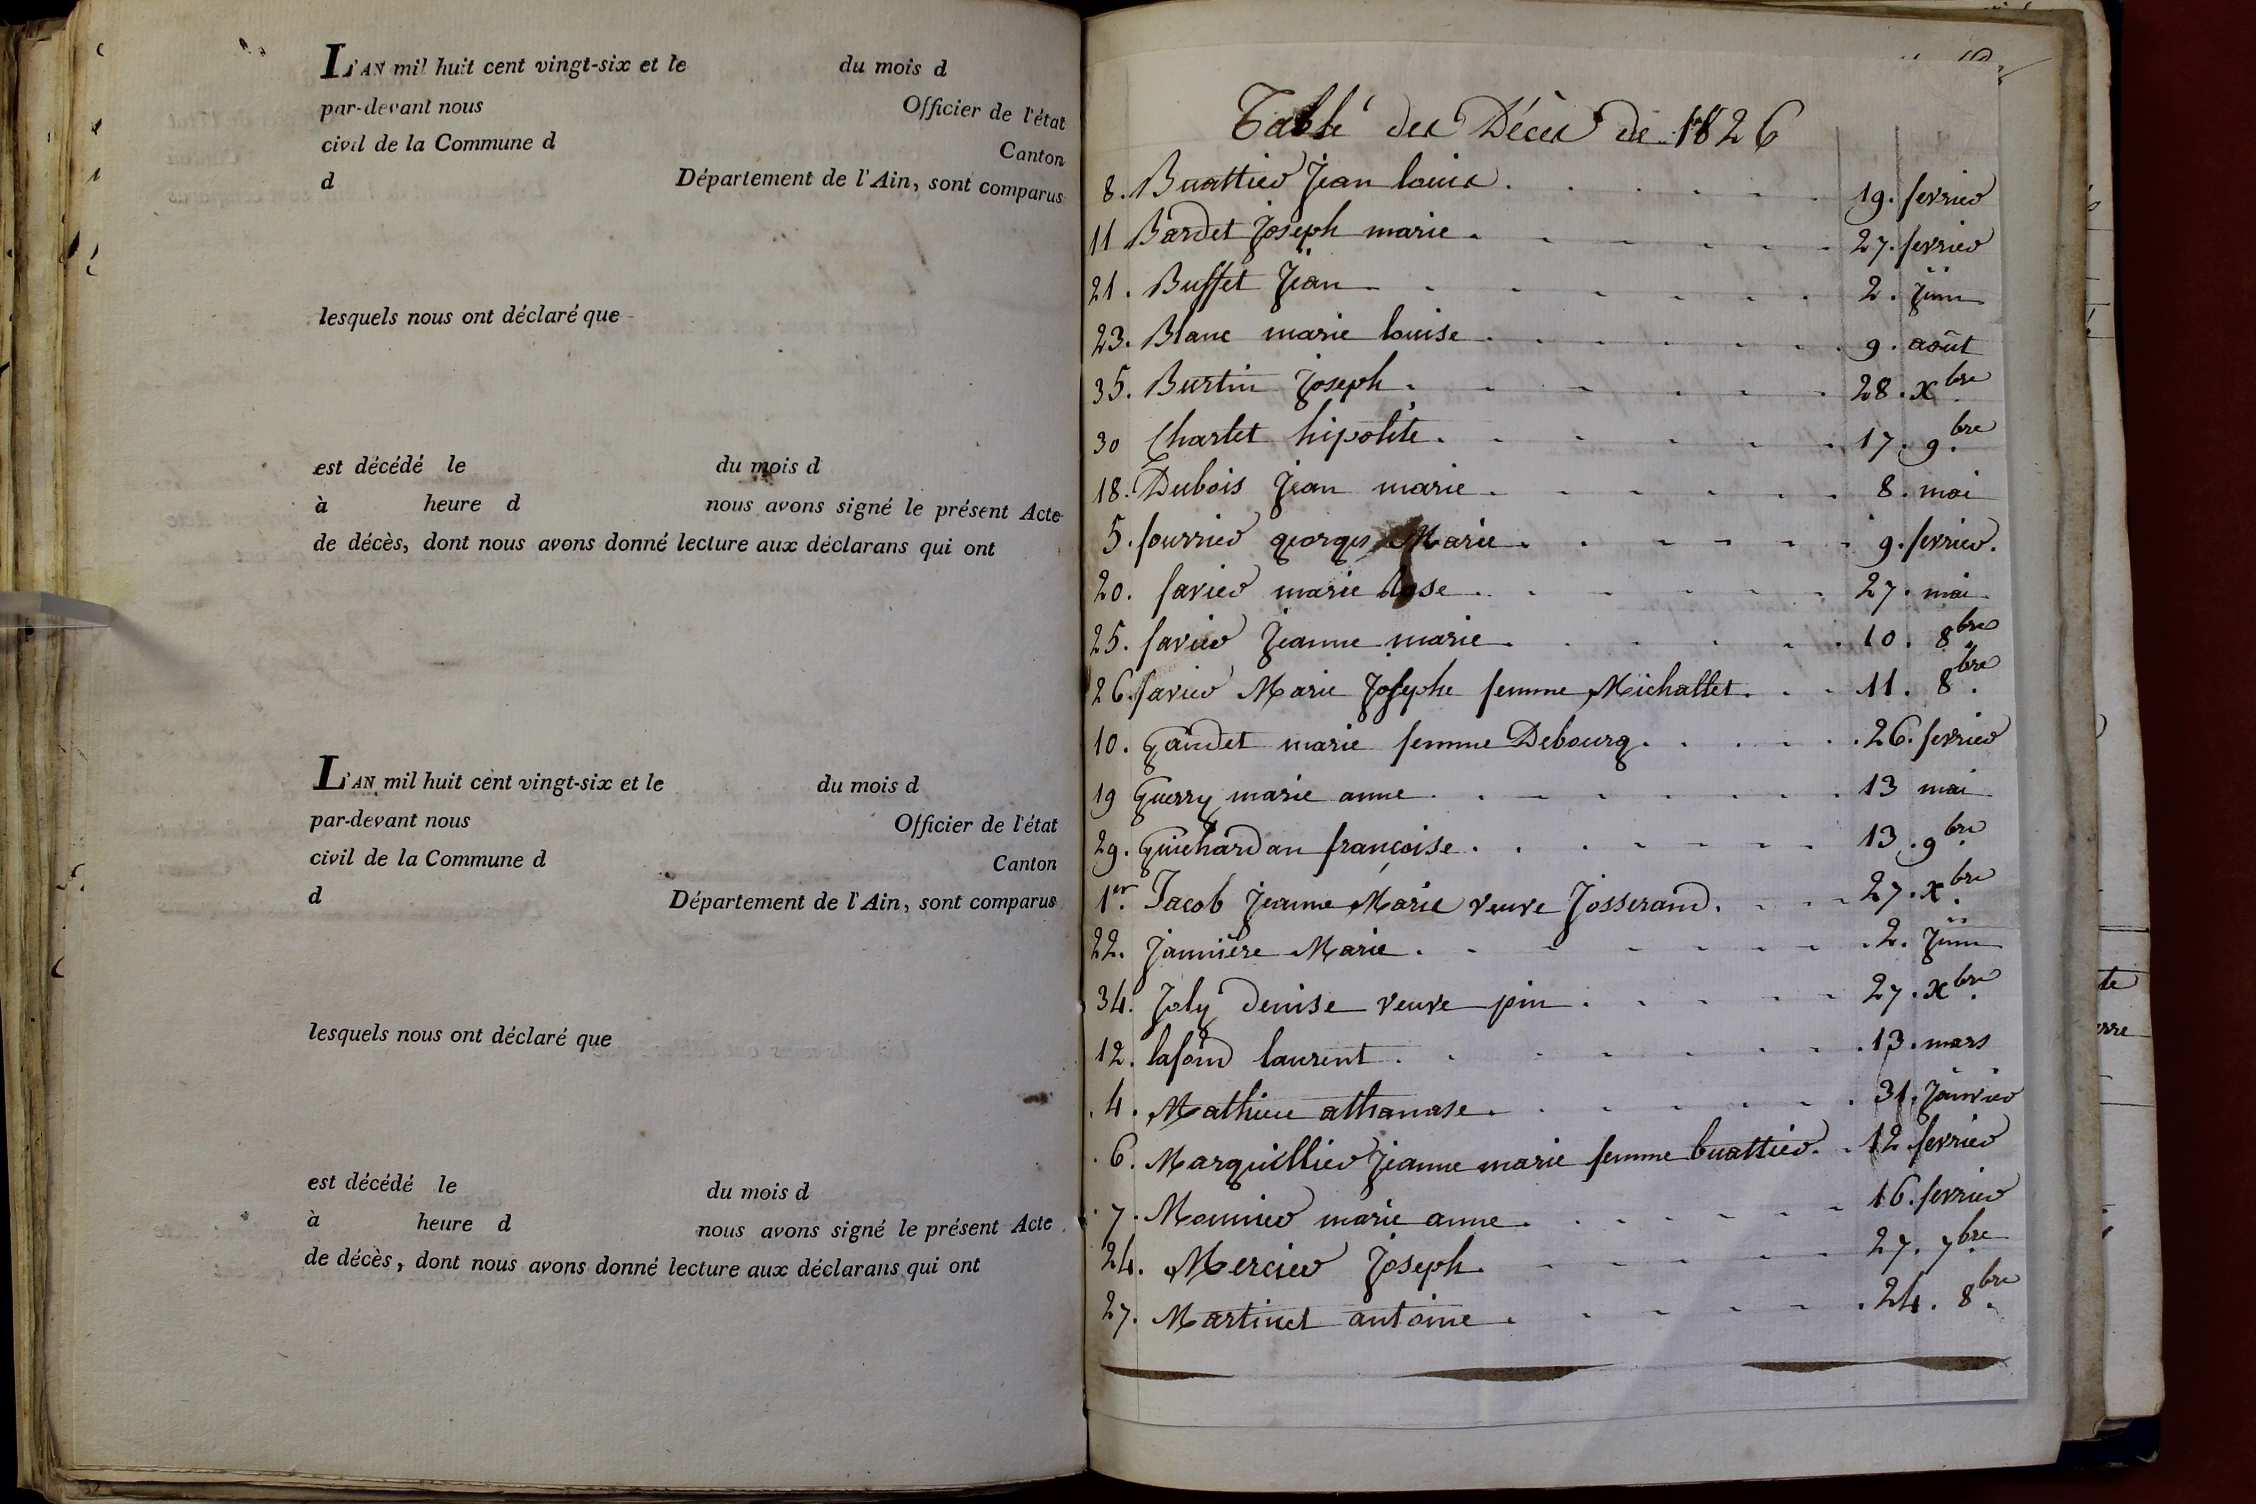 L'AN mil huit cent vingt-six et le du mois d
par-devant nous Officier de l'état
civil de la Commune d Canton
d Département de l'Ain, sont comparus
lesquels nous ont déclaré que
est décédé le du mois d
à heure d nous avons signé le présent Acte
de décès, dont nous avons donné lecture aux déclarans qui ont
L'AN mil huit cent vingt-six et le du mois d
par-devant nous Officier de l'état
civil de la Commune d Canton
d Département de l'Ain, sont comparus
lesquels nous ont déclaré que
est décédé le du mois d
à heure d nous avons signé le présent Acte
de décès, dont nous avons donné lecture aux déclarans qui ont
Table des Décès de 1826
8. Buattier Jean louis 19. fevrier
11 Bardet Joseph marie 27. fevrier
21. Buffet Jean 2. Juin
23. Blanc marie louise 9. août
35. Burtin Joseph 28. xbre
30 Charlet hipolite 17. 9bre
18. Dubois Jean marie 8. mai
5. fourrier georges Marie 9. fevrier.
20. favier marie Rose 27. mai
25. favier Jeanne marie 10. 8bre
26. favier Marie Josephe femme Michallet 11. 8bre
10. Gaudet marie femme Debourg 26. fevrier
19 Guerry marie anne 13 mai
29. Guichardan françoise 13. 9bre
1er. Jacob Jeanne Marie veuve Josserand 27. xbre
22. Jannière Marie 2. Juin
34. Joly denise veuve pin 27. xbre
12. lafond laurent 13. mars
4. Mathieu athanase 31. Janvier
6. Marquillier Jeanne marie femme buattier 12 fevrier
7. Monnier marie anne 16. fevrier
24. Mercier Joseph 27. 7bre
27. Martinet antoine 24. 8bre